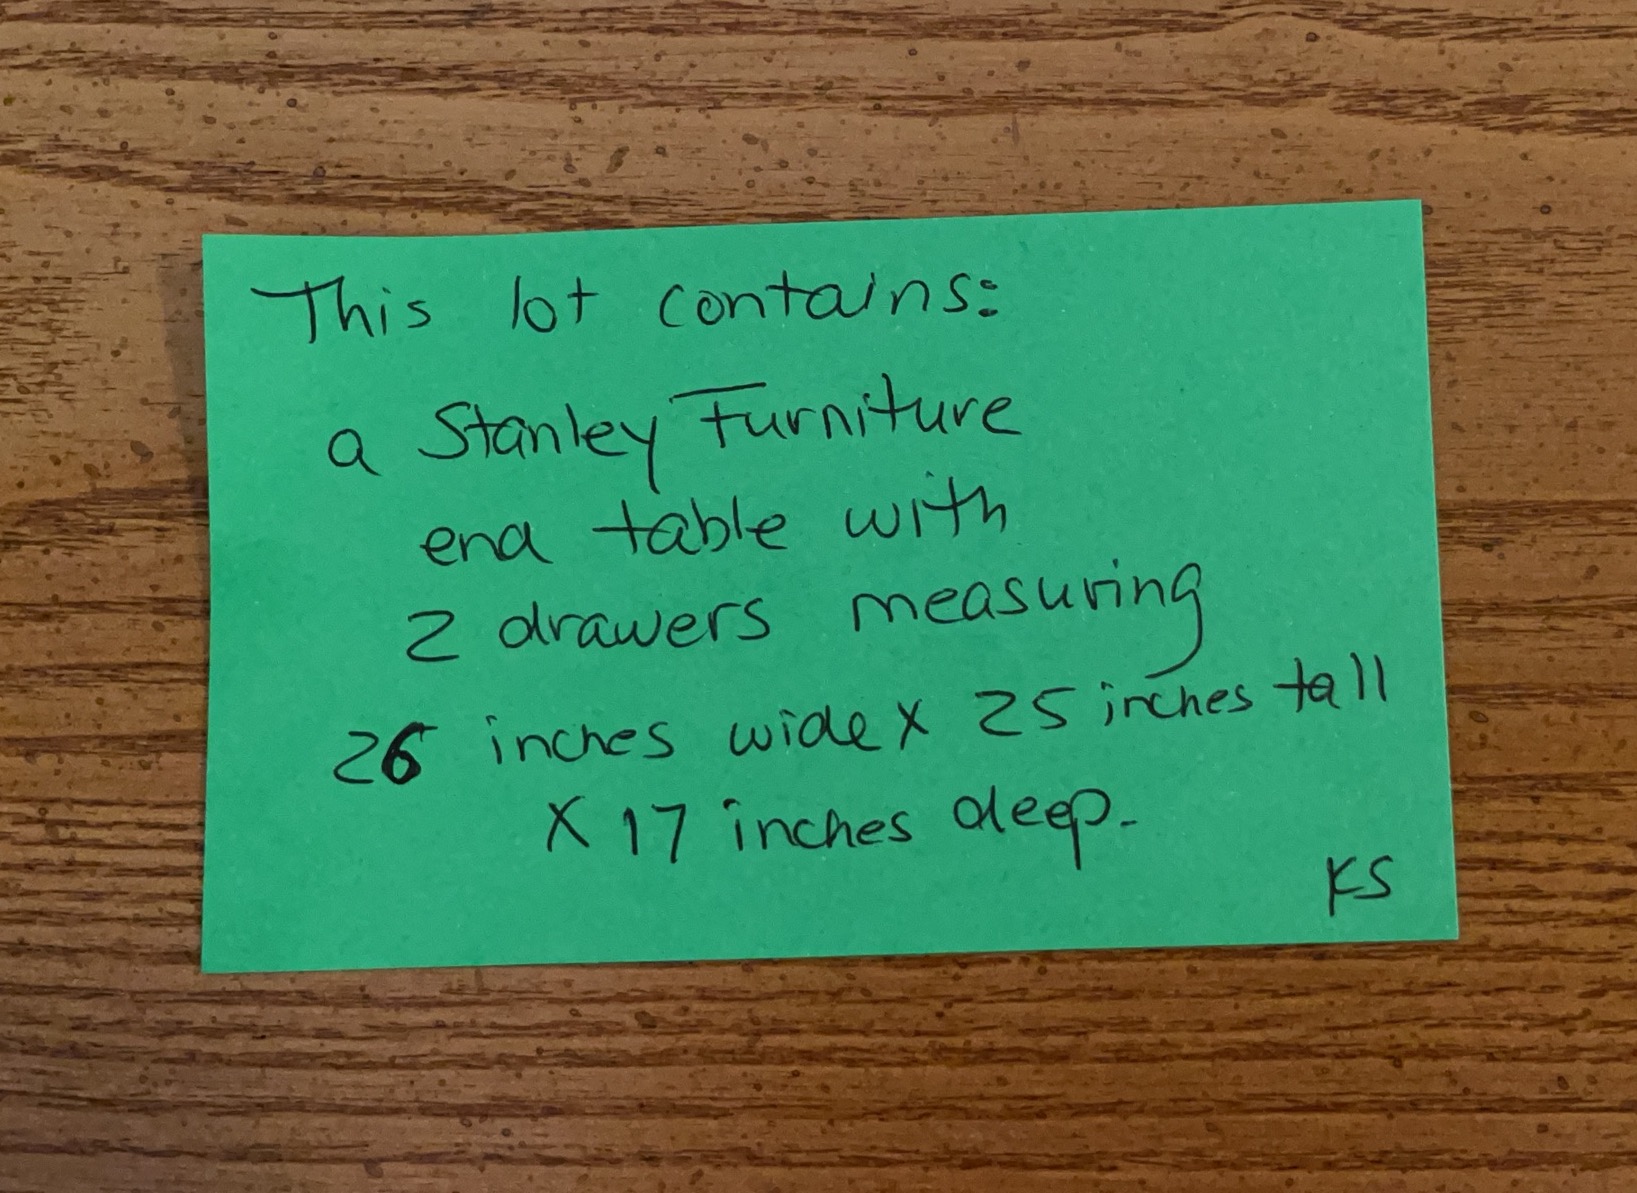 This lot contains:
a Stanley Furniture
end table with
2 drawers measuring
26 inches wide x 25 inches tall
x 17 inches deep.
KS